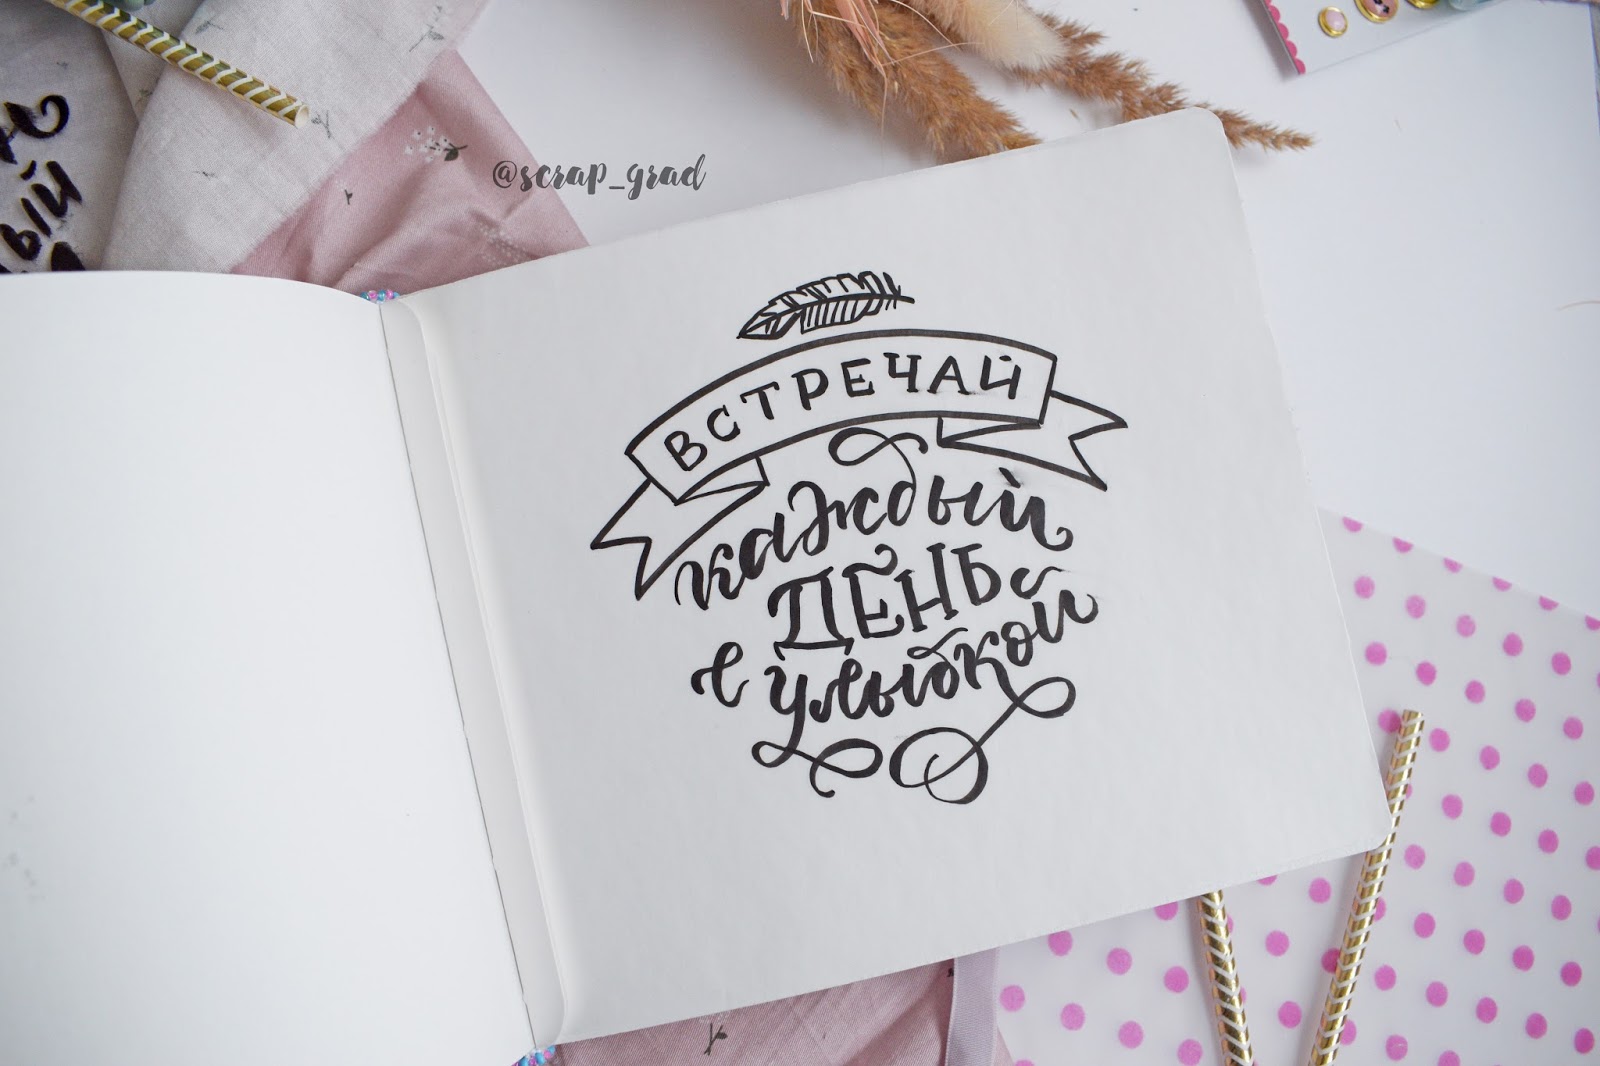 @scrap_grad
ый
ВСТРЕЧАЙ
каждый
ДЕНЬ
с улыбкой